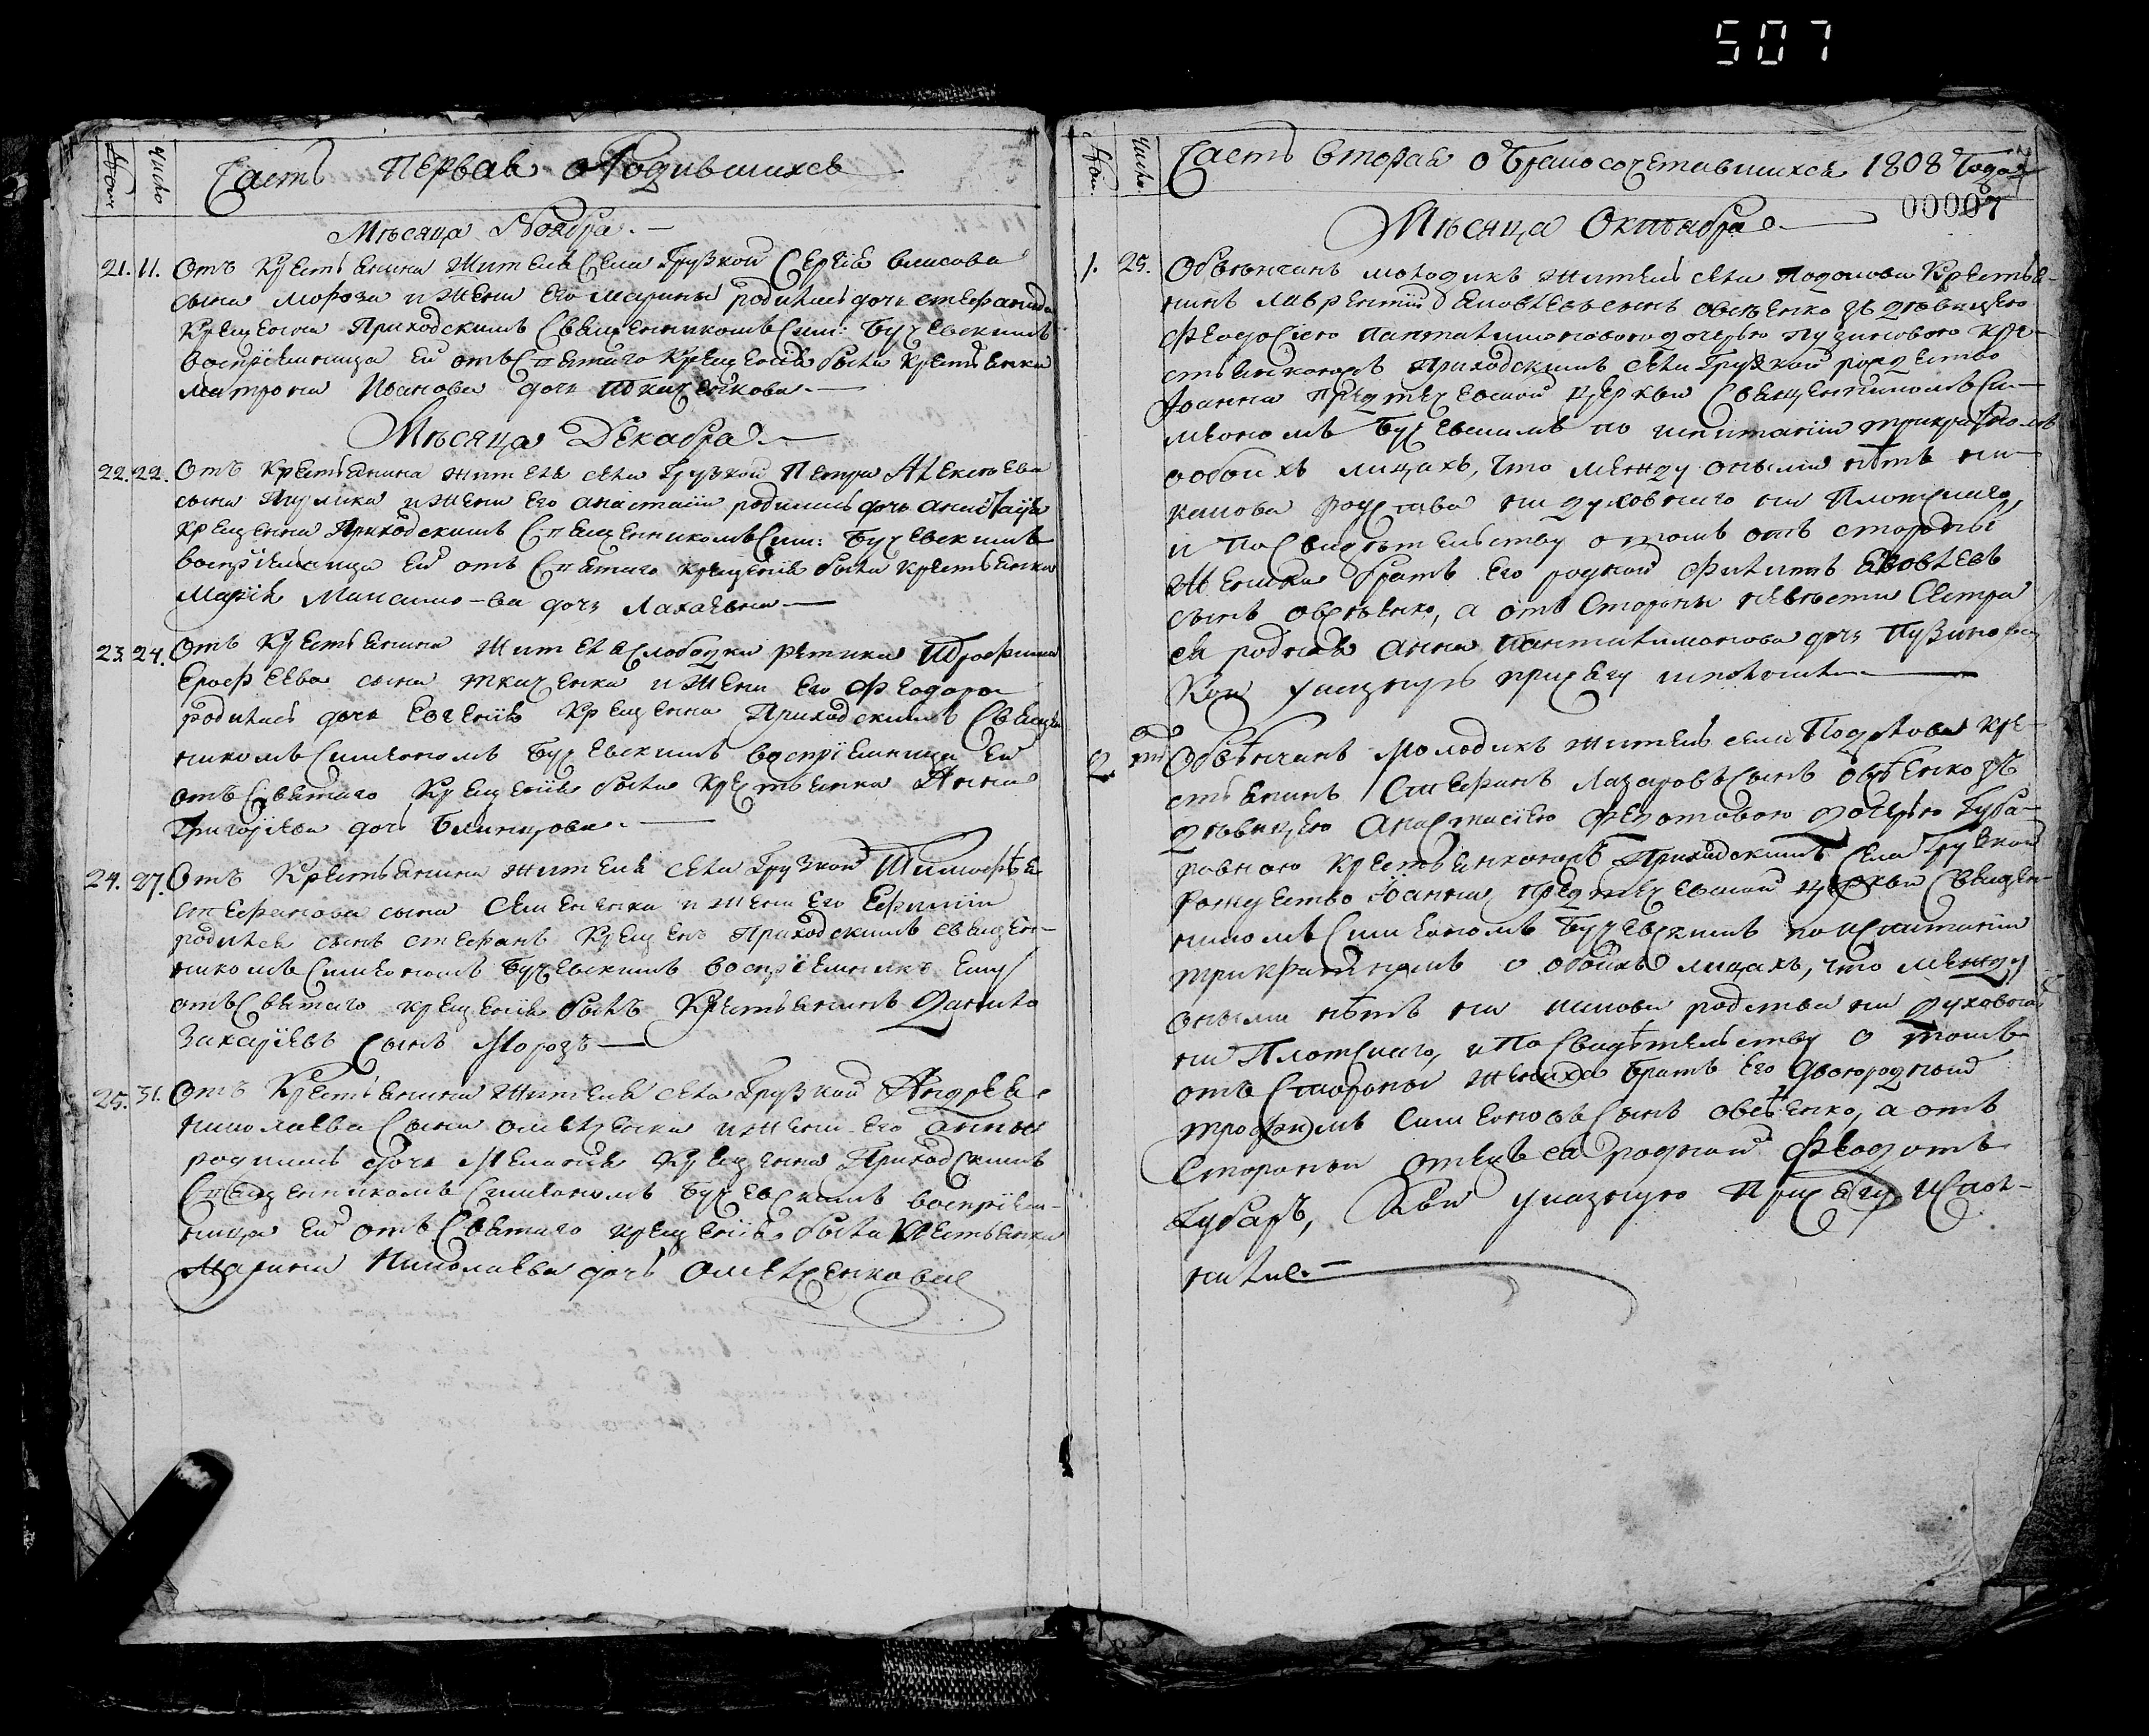 507
Число
Часть Первая о Родившихся
Мѣсяца Ноября.
21. 11. Отъ Крестьянина жителя Села Грузкой Сергія Власова
сына Мороза и жены его Марины родилась дочь Стефанида
Крещенна Приходскимъ Священникомъ Сим: Бучевскимъ
воспріемница ей отъ Святаго Крещенія была крестьянка
Матрона Иванова дочь Ткаченкова.
Мѣсяца Декабря.
22. 22. Отъ крестьянина жителя села Грузкой Петра Алексѣева
сына и жены его Анастасіи родилась дочь Анастасія
крещенна Приходскимъ Священникомъ Сим: Бучевскимъ
воспріемница ей отъ Святаго крещенія была крестьянка
Марія Максимо-ва дочь
23. 24. Отъ Крестьянина жителя Слободки Ретика Трофима
Ерофеева сына Ткаченка и жены его Феодоры
родилась дочь Евгенія Крещенна Приходскимъ Священ
никомъ Симеономъ Бучевскимъ воспріемница ей
отъ Святаго Крещенія была Крестьянка Анна
Григоріева дочь
24. 27. Отъ Крестьянина жителя села Грузкой Тимофѣя
Стефанова сына Семененка и жены его Ефиміи
родился сынъ Стефанъ Крещенъ Приходскимъ Священ-
никомъ Симеономъ Бучевскимъ воспріемникъ ему
отъ Святаго крещенія былъ Крестьянинъ Данило
Захаріевъ Сынъ Морозъ
25. 31. Отъ Крестьянина жителя села Грузкой Андрея
Николаева Сына Омельченка и жены его Анны
родилась дочь Меланія Крещенна Приходскимъ
Священникомъ Симеономъ Бучевскимъ воспріем-
ница ей отъ Святаго крещенія была Крестьянка
Марина Николаева дочь Омельченкова
Число.
Часть Вторая о Бракосочетавшихся 1808 Года
00007
Мѣсяца Октября.
1. 25. Обвѣнчанъ молодикъ житель села Подолова Крестья-
нинъ Лаврентій Яковлевъ сынъ Овсѣенко зъ дѣвицею
Феодосіею Пантелимоновою дочерью Пузиновою кре-
стьянкою Приходскимъ села Грузкой рождество
Іоанна предтечевской церкви Священникомъ Си-
меономъ Бучевскимъ по испитаніи трикратномъ
о обоихъ лицахъ, что между оными нѣтъ ни
какова родства ни духовнаго ни Плотскаго,
и по Свидѣтельству о томъ отъ стороны
жениха братъ его родной Филипъ Яковлевъ
сынъ Овсѣенко, а отъ Стороны невѣсти Сестра
ея родная Анна Пантелимонова дочь Пузинова
Кои указную присягу исполнили
2. Обвѣнчанъ Молодикъ житель села Подолова кре-
стьянинъ Стефанъ Лазаровъ Сынъ Овсѣенко зъ
дѣвицею Анастасіею Федотовою дочерью Губа-
ровною крестьянкою Приходскимъ Села Грузкой
Рождество Іоанна предтечевской церкви Священ-
никомъ Симеономъ Бучевскимъ по испитаніи
трикратномъ о обоихъ лицахъ, что между
оными нѣтъ ни какова родства ни духовнаго
ни Плотскаго, и по Свидѣтельству о томъ
отъ Стороны Жениха братъ его двоюродный
Трофимъ Симеоновъ Сынъ Овсѣенко, а отъ
Стороны отецъ ея родной Феодотъ
Губаръ, Кои указную присягу испол-
нили.